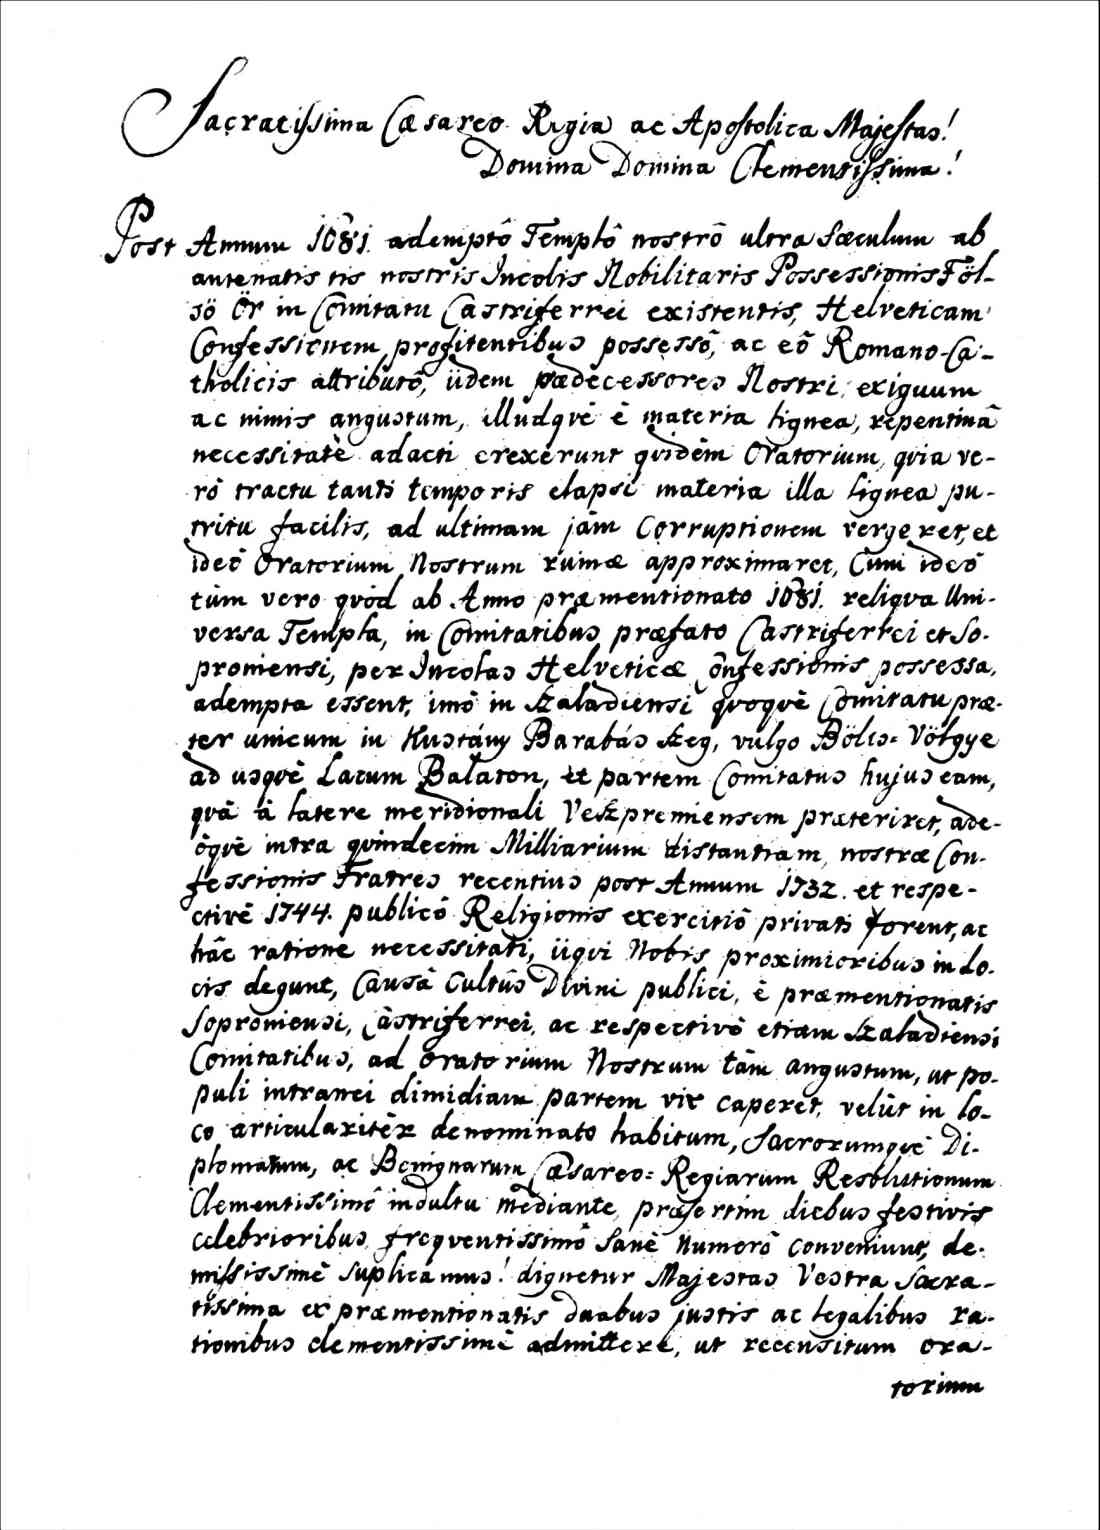 Sacratissima Cæsareo Regia ac Apostolica Majestas!
Domina Domina Clementissima!
Post Annum 1681. ademptô Templô nostrô ultra Sæculum ab
antenatis tis nostris Incolis Nobilitaris Possessionis Föl-
sö Ör in Comitatu Castriferrei existentis, Helveticam
Confessionem profitentibus possessô, ac eô Romano-Ca-
tholicis attributô, iidem prædecessores Nostri exiguum
ac nimis angustum, illudqvè è materia lignea, repentinâ
necessitatè adacti erexèrunt qvidèm Oratorium, qvia ve-
rò tractu tanti temporis elapsi materia illa lignea pu-
tritu facilis, ad ultimam jàm Corruptionem vergeret, et
ideò Oratorium Nostrum ruinæ approximaret, Cum ideò
tùm vero qvòd ab Anno præmentionato 1681. reliqva Uni-
versa Templa, in Comitatibus præfato Castriferrei et So-
proniensi, per Incolas Helveticæ Confessionis possessa,
adempta essent, imò in Szaladiensi qvoqvè Comitatu præ-
ter unicum in Kustány Barabás Szeg, vulgo Bölts= Völgye
ad usqvè Lacum Balaton, et partem Comitatus hujus eam,
qvâ à latere meridionali Veszpremiensem præteriret, ade-
òqvè intra qvindecim Milliarium distantiam, nostræ Con-
fessionis Fratres recentius post Annum 1732. et respe-
ctivè 1744. publicô Religionis exercitiô privati forent, ac
hâc ratione necessitati, iiqvi Nobis proximioribus in Lo-
cis degunt, Causâ Cultûs Divini publici, è præmentionatis
Soproniensi, Castriferrei, ac respectivè etiam Szaladiensi
Comitatibus, ad Oratorium Nostrum tàm angustum, ut po-
puli intranei dimidiam partem vix caperet, velùt in lo-
co articularitèr denominato habitum, Sacrorumqvè Di-
plomatum, ac Benignarum Cæsareo= Regiarum Resolutionum
Clementissimô indultu mediante, præsertim diebus festivis
celebrioribus, freqventissimô Sanè Numerô conveniunt, de-
missisimè suplicamus! dignetur Majestas Vestra Sacra-
tissima ex præmentionatis duabus justis ac legalibus ra-
tionibus clementissimè admittere, ut recensitum ora-
torium